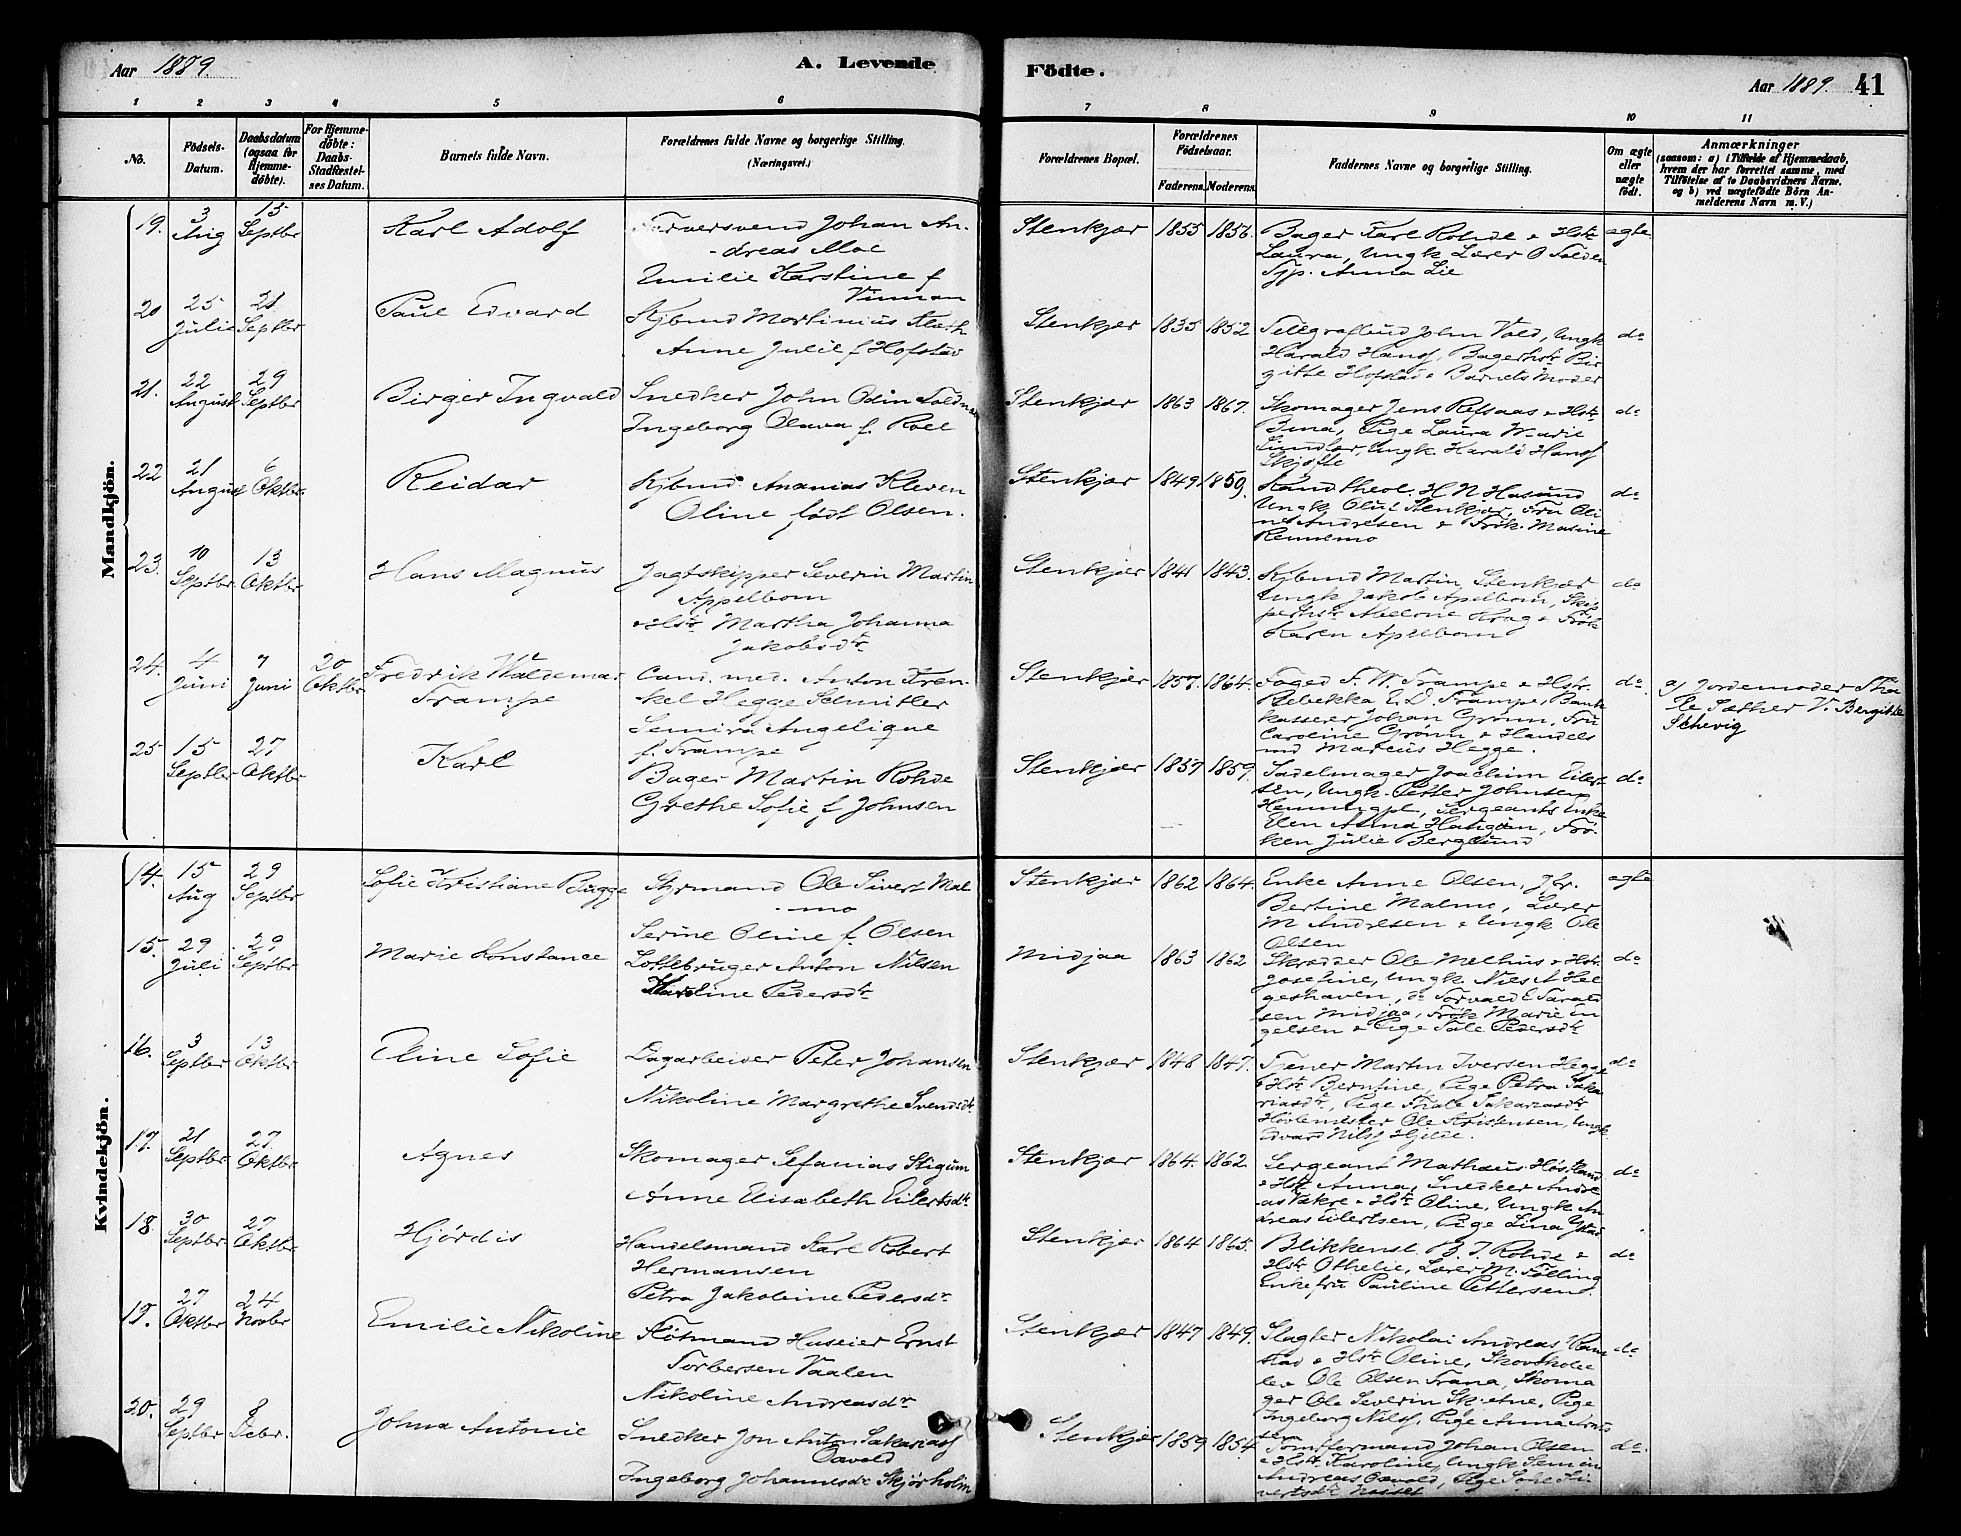 Aar 1889.
A. Levende
Födte.
Aar 1889.
41
1 2 3 4 5 6 7 8 9 10 11
No.
Födsels-Datum.
Daabsdatum (ogsaa for Hjemme-döbte).
For Hjemme-döbte: Daabs-Stadfæstel-ses Datum.
Barnets fulde Navn.
Forældrenes fulde Navne og borgerlige Stilling. (Næringsvei.)
Forældrenes Bopæl.
Forældrenes Födselsaar.
Faderens. Moderens.
Faddernes Navne og borgerlige Stilling.
Om ægte eller uægte födt.
Anmærkninger
(saasom: a) i Tilfælde af Hjemmedaab,
hvem der har forrettet samme, med
Tilföielse af to Daabsvidners Navne.
og b) ved uægtefödte Börn An-
melderens Navn m. V.)
Mandkjön.
19. 3 Aug 15 Septbr Karl Adolf
Farversvend Johan An-
dreas Moe
Emilie Karstine f
Vinman
Stenkjær 1855 1856.
Bager Karl Rohde & Hstr
Laura, Ungk Lærer O Folden
Tjp. Anna Lie
ægte
20 25 Juli 21 Septbr Paul Edvard
Kjbmd Martinius
Anne Julie f Hofstad
Stenkjer 1835 1852
Telegrafbud John Vold, Ungk
Harald Hansf, Bagerhstr Bir
gitte Hofstad & Barnets Moder
do
21. 22 August 29 Septbr Birger Ingvald
Snedker John Odin
Ingeborg Olava f. Roel
Stenkjær 1863 1867.
Skomager Jens Refsaas & Hstr
Bina, Pige Laura Marie
Ungk Harald Hansf
Skjefte
do
22 21 August 6 Oktbr Reidar
Kjbmd. Ananias Kleven
Oline født Olsen.
Stenkjær 1849. 1859.
Kand theol. H N Hasund
Ungk Oluf Stenkjær, Fru Oli
ne Andresen & Frøk. Masine
Rennemo
do
23. 10 Septbr. 13 Oktbr Hans Magnus
Jagtskipper Severin Martin
Appelbom
& Hstr Martha Johanna
Jakobsdtr
Stenkjer 1841 1843.
Kjbmd Martin Stenkjær
Ungk Jakob Apelbom, Skip
perhstr Abelone Krog & Frøk
Karen Apelbom
do
24. 4 Juni 7 Juni 20 Oktbr Fredrik Waldemar
Trampe
Cand. med. Anton Fren-
kel Hegge Schnitler
Semira Angelique
f. Trampe
Stenkjær 1857. 1864.
Foged F. W Trampe & Hstr.
Rebekka Trampe, Bank
kasserer Johan Grønn, Fru
Caroline Grønn & Handels
md Marcus Hegge.
do
a) Jordemoder Tha
le Sæther V. Bergitte
Schevig
25 15 Septbr 27 Oktbr Karl
Bager Martin Rohde
Grethe Sofie f Johnsen
Stenkjær 1857 1859.
Sadelmager Joachim Eilert
sen, Ungk. Petter Johnsen
Sergeants Enke
Elen Anna Haugan, Frø-
ken Julie Berglund
do
Kvindekjön.
14. 15 Aug 29 Septbr Sofie Kristiane Bugge
Styrmand Ole Sivert Mal
mo
Serine Oline f. Olsen
Stenkjær 1862 1864.
Enke Anne Olsen, Jfr.
Bertine Malmo, Lærer
M Andresen & Ungk Ole
Olsen
ægte
15. 29 Juli 29 Septbr Marie Konstance
Lottebruger Anton Nilsen
Karoline Pedersdtr
Midjaa 1863 1862
Skrædder Ole Melhus & Hstr.
Josefine, Ungk Nils A Hel
geshaven, do Torvald E Tarald
sen Midjaa, Frøk Marie En
gelsen & Pige Tale Pedersdtr
do
16. 3 Septbr 13 Oktbr Eline Sofie
Dagarbeider Peter Johansen
Nikoline Margrethe Svendsdtr
Stenkjær 1848 1847.
Tjener Martin Iversen Hegge
& Hstr Berntine, Pige Petra Saka
riasdtr, Pige Thale Sakariasdtr
Høvlemester Ole Kristensen, Ungk
Edvard Nilsf Hjelde.
do
17. 21 Septbr 27. Oktbr. Agnes
Skomager Sefanias Stigum
Anne Elisabeth Eilertsdtr
Stenkjær 1864. 1862.
Sergeant Mathæus
& Hstr Anna, Snedker Andre
as Vekre & Hstr Oline, Ungk An
dreas Eilertsen, Pige Lina Ystad
do
18 30 Septbr. 27 Oktbr. Hjørdis
Handelsmand Karl Robert
Hermansen
Petra Jakobine Pedersdtr
Stenkjær 1864 1865.
Blikkensl. B. J. Rohde &
Hstr Othelie, Lærer M. Følling
Enkefru Pauline Pettersen.
do
19. 27 Oktbr 24 Novbr Emilie Nikoline
Flötmand Huseier Ernst
Torbersen Vaalen
Nikoline Andreasdtr
Stenkjær 1847 1849.
Slagter Nikolai Andreas
& Hstr Oline,
Ole Olsen Trana, Skoma
ger Ole Severin Skjetne, Pige
Ingeborg Nilsf, Pige Anna Arnt
sen
do
20. 29 Septbr 8 Debr. Johna Antonie
Snedker Jon Anton Sakariasf
Oavold
Ingeborg Johannesdtr Skjørholm
Stenkjer 1859 1854
Tomtformand Johan Olsen
& Hstr Karoline, Ungk
Andreas Oavold, Pige Sofie Si
vertsdtr
do